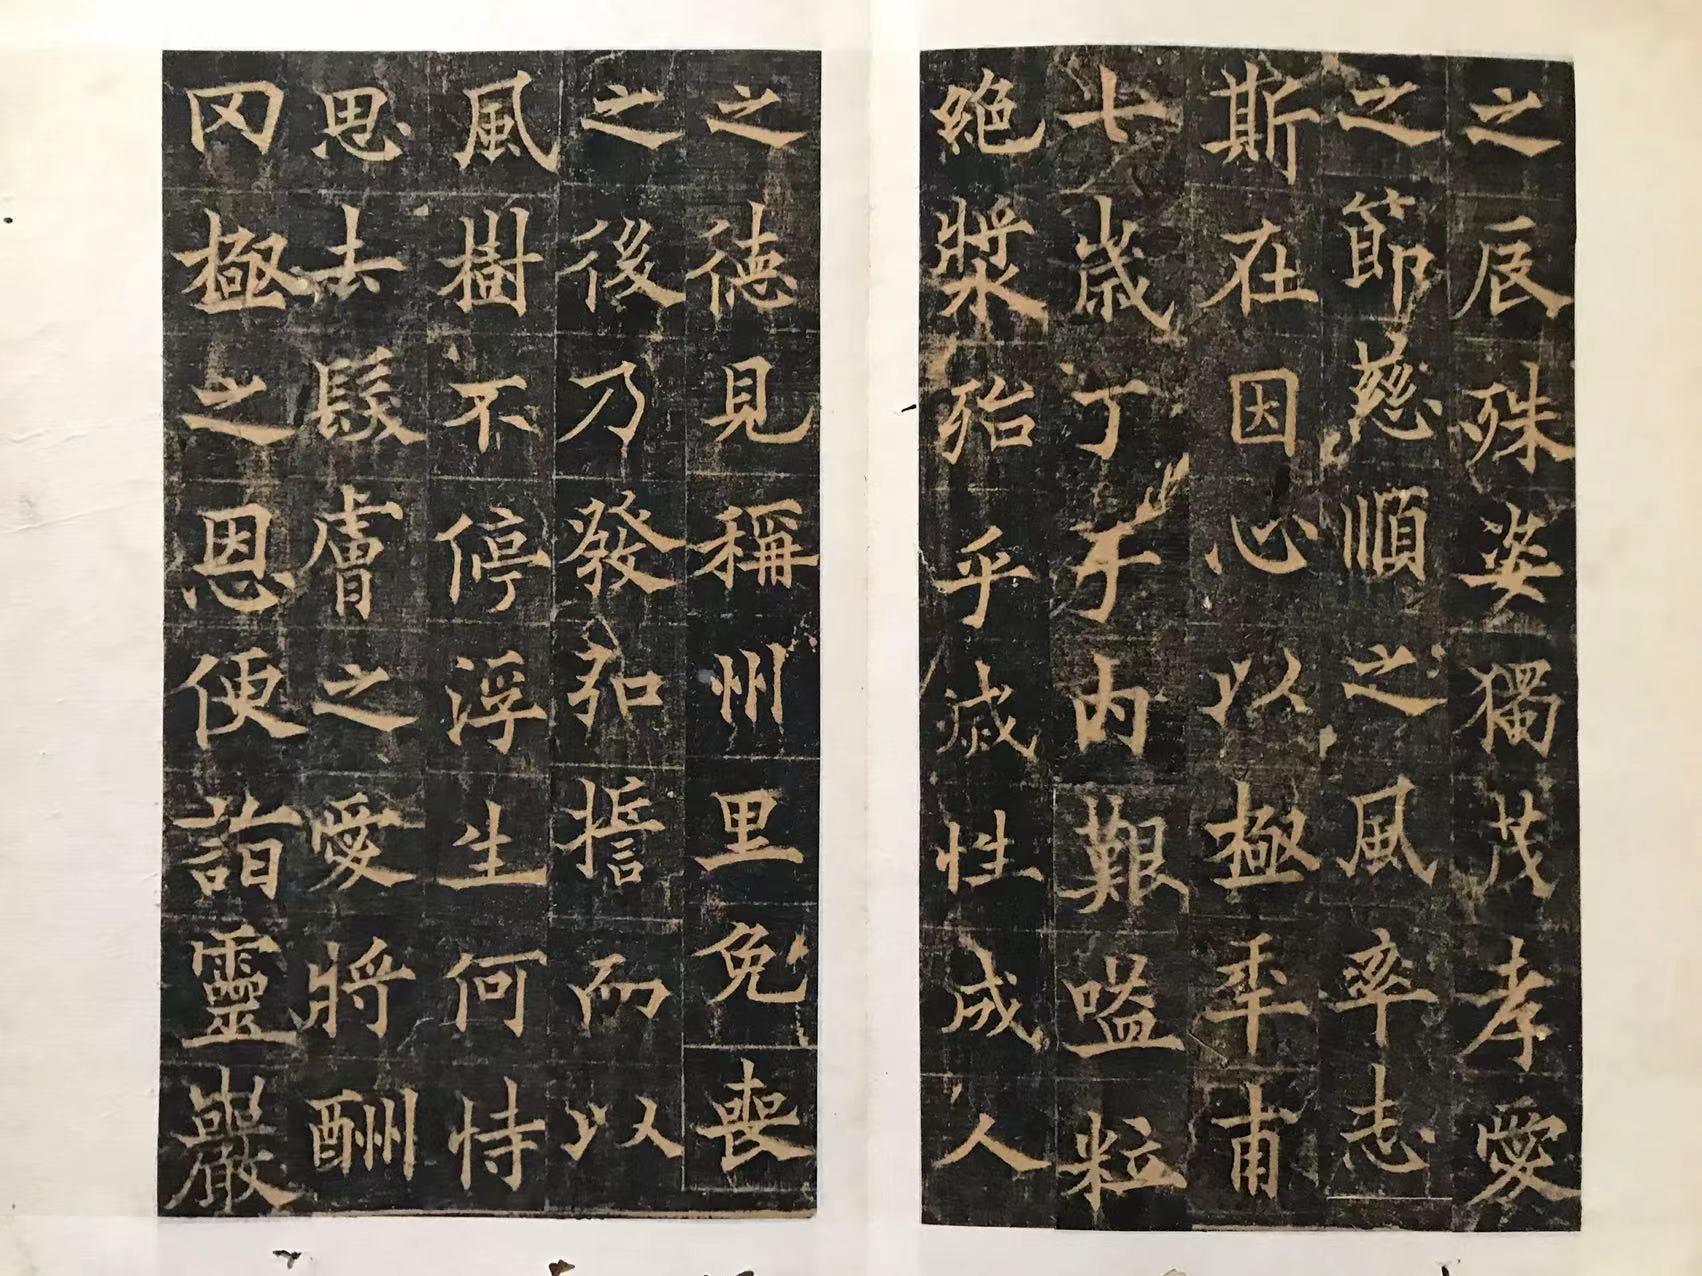 之辰殊姿獨茂孝愛
之節慈順之風率志
斯在因心以極年甫
七歲丁于內艱嗌粒
絶漿殆乎滅性成人
之德見稱州里免喪
之後乃發弘擔而以
風樹不停浮生何恃
思去髮膚之愛將酬
罔極之恩便詣靈巖